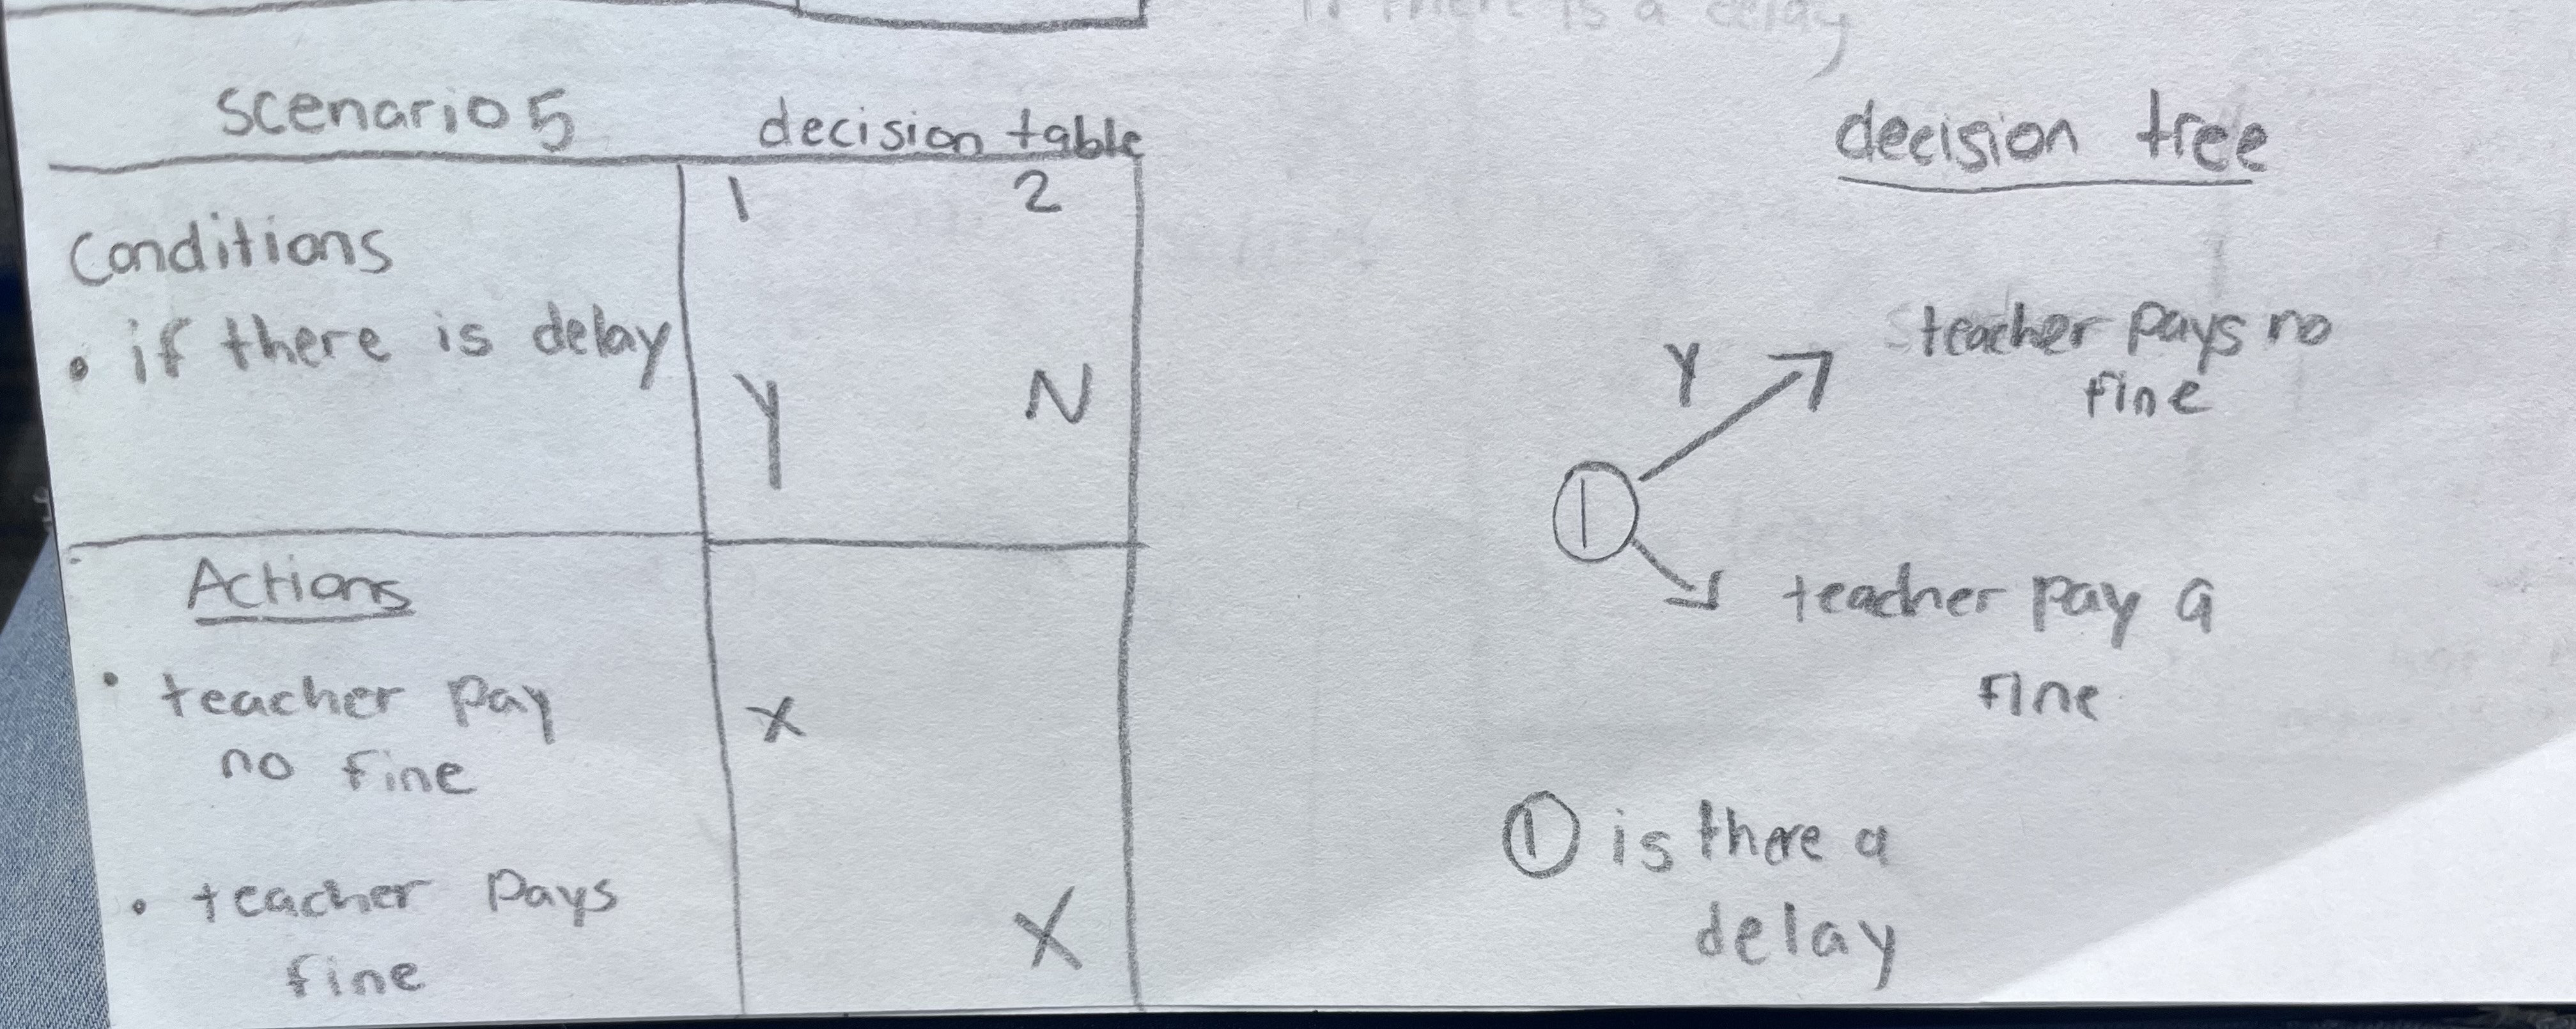 If there is a delay
scenario 5
decision table
1 2
Conditions
• if there is delay
Y N
Actions
• teacher pay
no fine
X
• teacher pays
fine
X
decision tree
Y
teacher pays no
fine
1
teacher pay a
fine
① is there a
delay